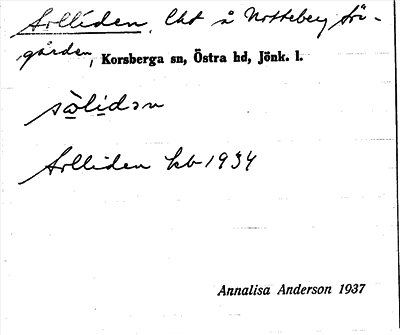 Solliden, lht å Notteberg frä-
gården, Korsberga sn, Östra hd, Jönk. l.
sòlidən
Solliden kb 1934
Annalisa Anderson 1937